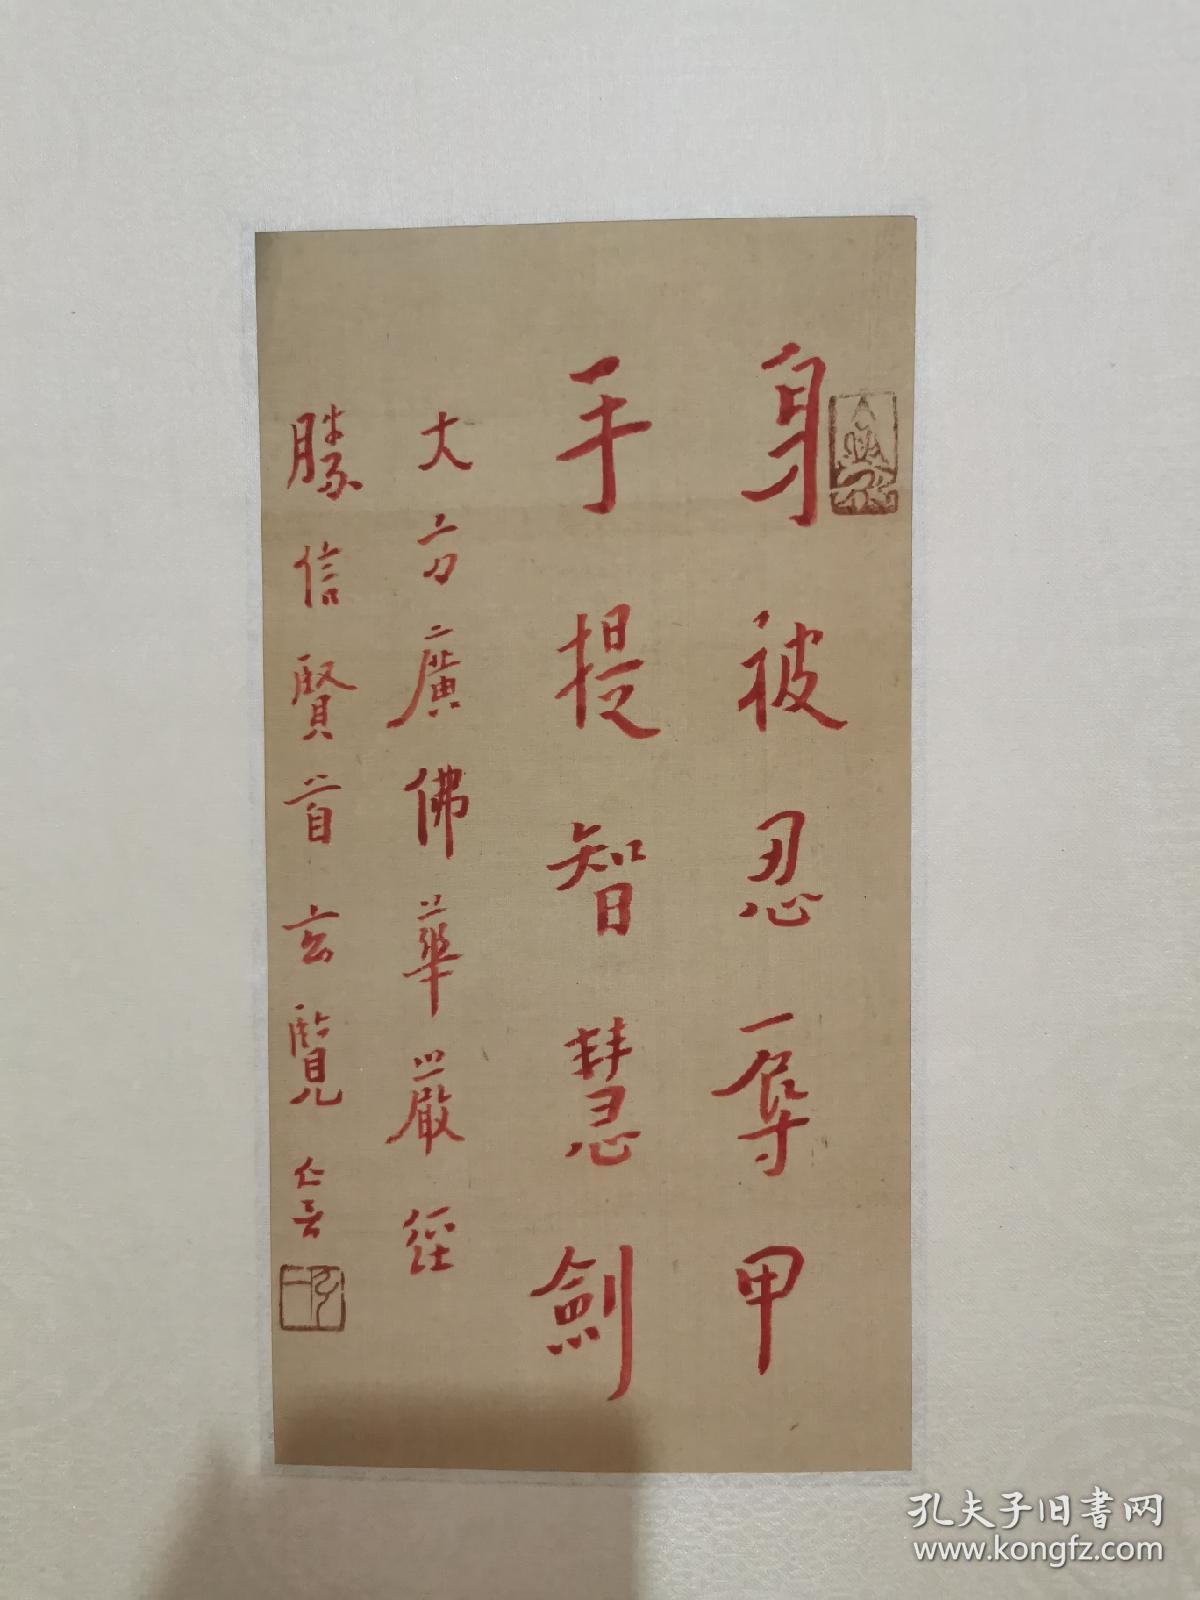 身被忍辱甲
手提智慧劍
大方廣佛華嚴經
勝信賢首玄覽 亡言
孔夫子旧書网
www.kongfz.com